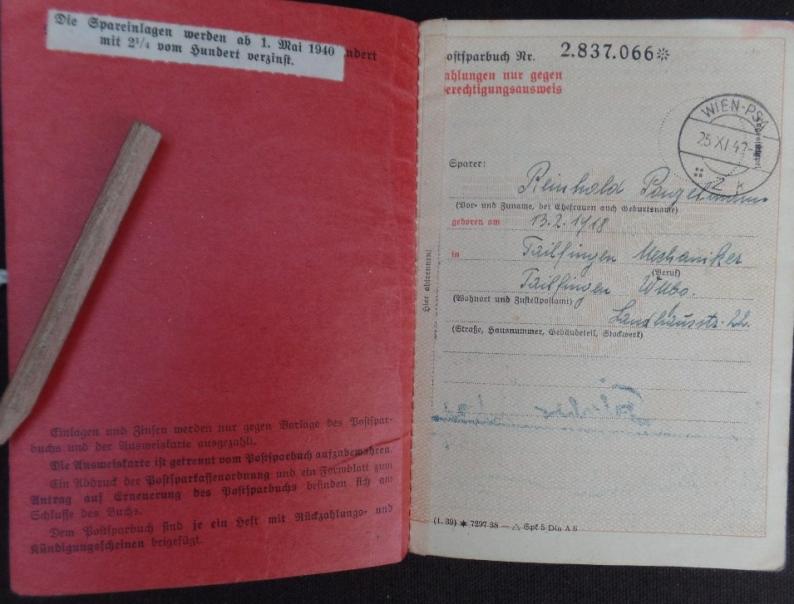 Die Spareinlagen werden ab 1. Mai 1940
mit 2¼ vom Hundert verzinst.
ndert
Einlagen und Zinsen werden nur gegen Vorlage des Postspar-
buchs und der Ausweiskarte ausgezahlt.
Die Ausweiskarte ist getrennt vom Postsparbuch aufzubewahren.
Ein Abdruck der Postsparkassenordnung und ein Formblatt zum
Antrag auf Erneuerung des Postsparbuchs befinden sich am
Schlusse des Buchs.
Dem Postsparbuch sind je ein Heft mit Rückzahlungs- und
Kündigungsscheinen beigefügt.
ostsparbuch Nr. 2.837.066*
ahlungen nur gegen
erechtigungsausweis
WIEN-PSA
25 XI 4
Sparer: Reinhold
(Vor- und Zuname, bei Ehefrauen auch Geburtsname)
geboren am 13.2.1918
in Tailfingen Mechaniker
(Beruf)
Tailfingen
(Wohnort und Zustellpostamt)
(Straße, Hausnummer, Gebäudeteil, Stockwerk)
Hier abtrennen!
(1. 39) ✱ 7297 38 — △ Spk 5 Din A 6